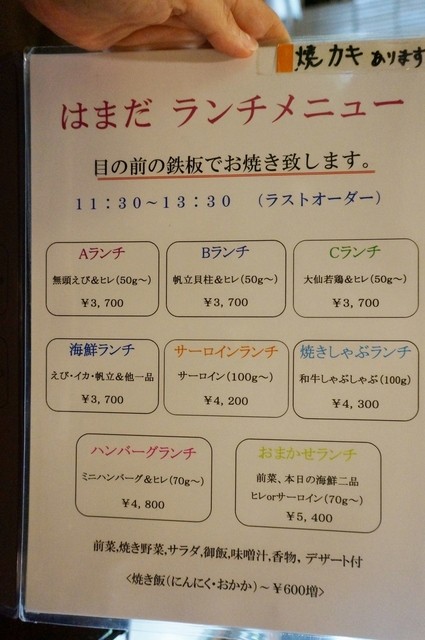 焼カキあります
はまだ ランチメニュー
目の前の鉄板でお焼き致します。
11:30～13:30 (ラストオーダー)
Aランチ
無頭えび&ヒレ(50g～)
¥3,700
Bランチ
帆立貝柱&ヒレ(50g～)
¥3,700
Cランチ
大仙若鶏&ヒレ(50g～)
¥3,700
海鮮ランチ
えび・イカ・帆立&他一品
¥3,700
サーロインランチ
サーロイン(100g～)
¥4,200
焼きしゃぶランチ
和牛しゃぶしゃぶ(100g)
¥4,300
ハンバーグランチ
ミニハンバーグ&ヒレ(70g～)
¥4,800
おまかせランチ
前菜、本日の海鮮二品
ヒレorサーロイン(70g～)
¥5,400
前菜,焼き野菜,サラダ,御飯,味噌汁,香物,デザート付
<焼き飯(にんにく・おかか)～¥600増>